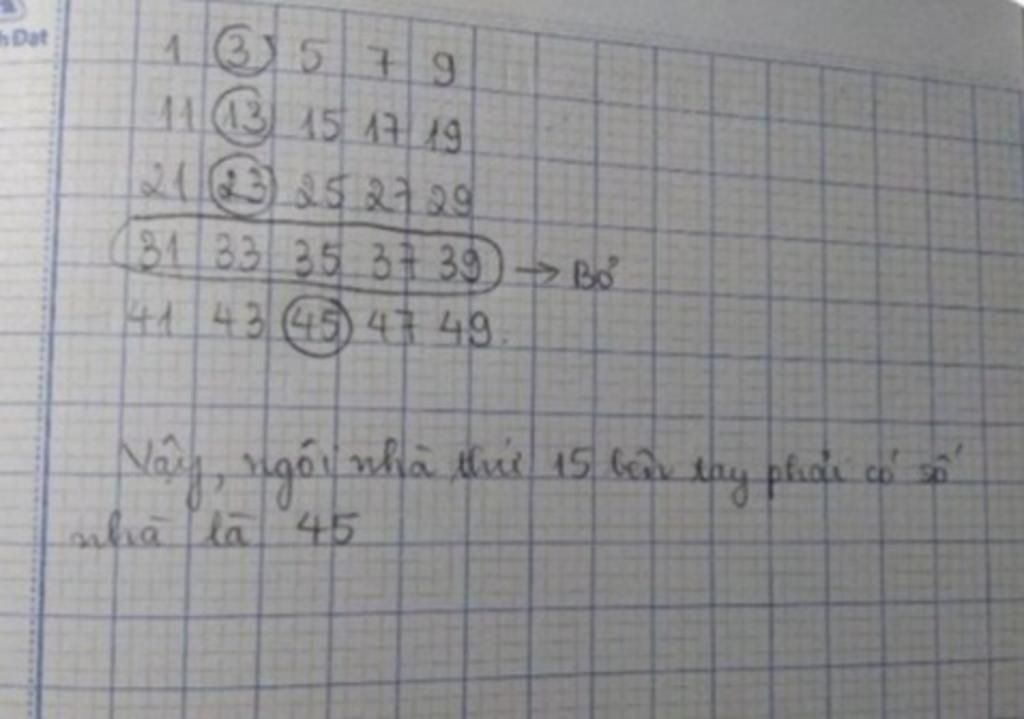 h Đạt
1 3 5 7 9
11 13 15 17 19
21 23 25 27 29
31 33 35 37 39 → Bỏ
41 43 45 47 49.
Vậy, ngôi nhà thứ 15 bên tay phải có số
nhà là 45